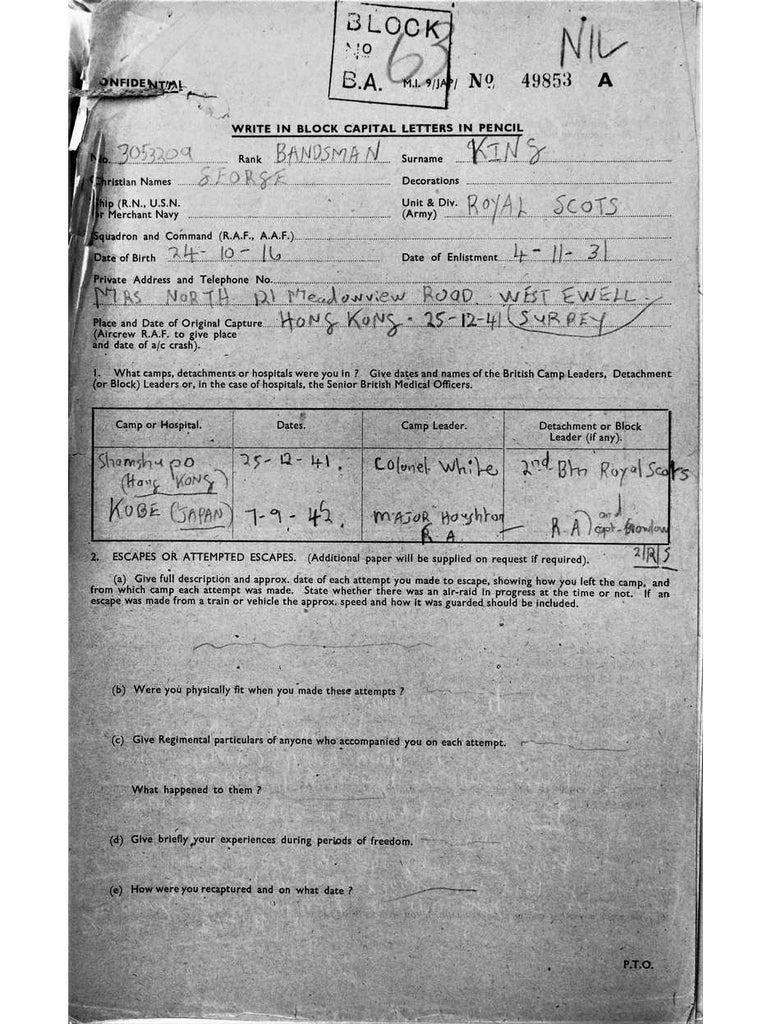 BLOCK
No 63
B.A.
NIL
CONFIDENTIAL
M.I. 9/JAP/ No 49853 A
WRITE IN BLOCK CAPITAL LETTERS IN PENCIL
No. 3053209 Rank BANDSMAN Surname KING
Christian Names GEORGE Decorations
Ship (R.N., U.S.N. Unit & Div. ROYAL SCOTS
or Merchant Navy (Army)
Squadron and Command (R.A.F., A.A.F.)
Date of Birth 24-10-16 Date of Enlistment 4-11-31
Private Address and Telephone No.
MRS NORTH 121 Meadowview ROAD. WEST EWELL.
Place and Date of Original Capture HONG KONG - 25-12-41 SURREY
(Aircrew R.A.F. to give place
and date of a/c crash).
1. What camps, detachments or hospitals were you in ? Give dates and names of the British Camp Leaders, Detachment
(or Block) Leaders or, in the case of hospitals, the Senior British Medical Officers.
Camp or Hospital. Dates. Camp Leader. Detachment or Block
Leader (if any).
Shamshupo 25-12-41. Colonel White 2nd Btn Royal Scots
(Hong KONG)
KOBE (JAPAN) 7-9-42. MAJOR Houghton R A) and
R A capt-
2/R/S
2. ESCAPES OR ATTEMPTED ESCAPES. (Additional paper will be supplied on request if required).
(a) Give full description and approx. date of each attempt you made to escape, showing how you left the camp, and
from which camp each attempt was made. State whether there was an air-raid in progress at the time or not. If an
escape was made from a train or vehicle the approx. speed and how it was guarded should be included.
(b) Were you physically fit when you made these attempts ?
(c) Give Regimental particulars of anyone who accompanied you on each attempt.
What happened to them ?
(d) Give briefly your experiences during periods of freedom.
(e) How were you recaptured and on what date ?
P.T.O.